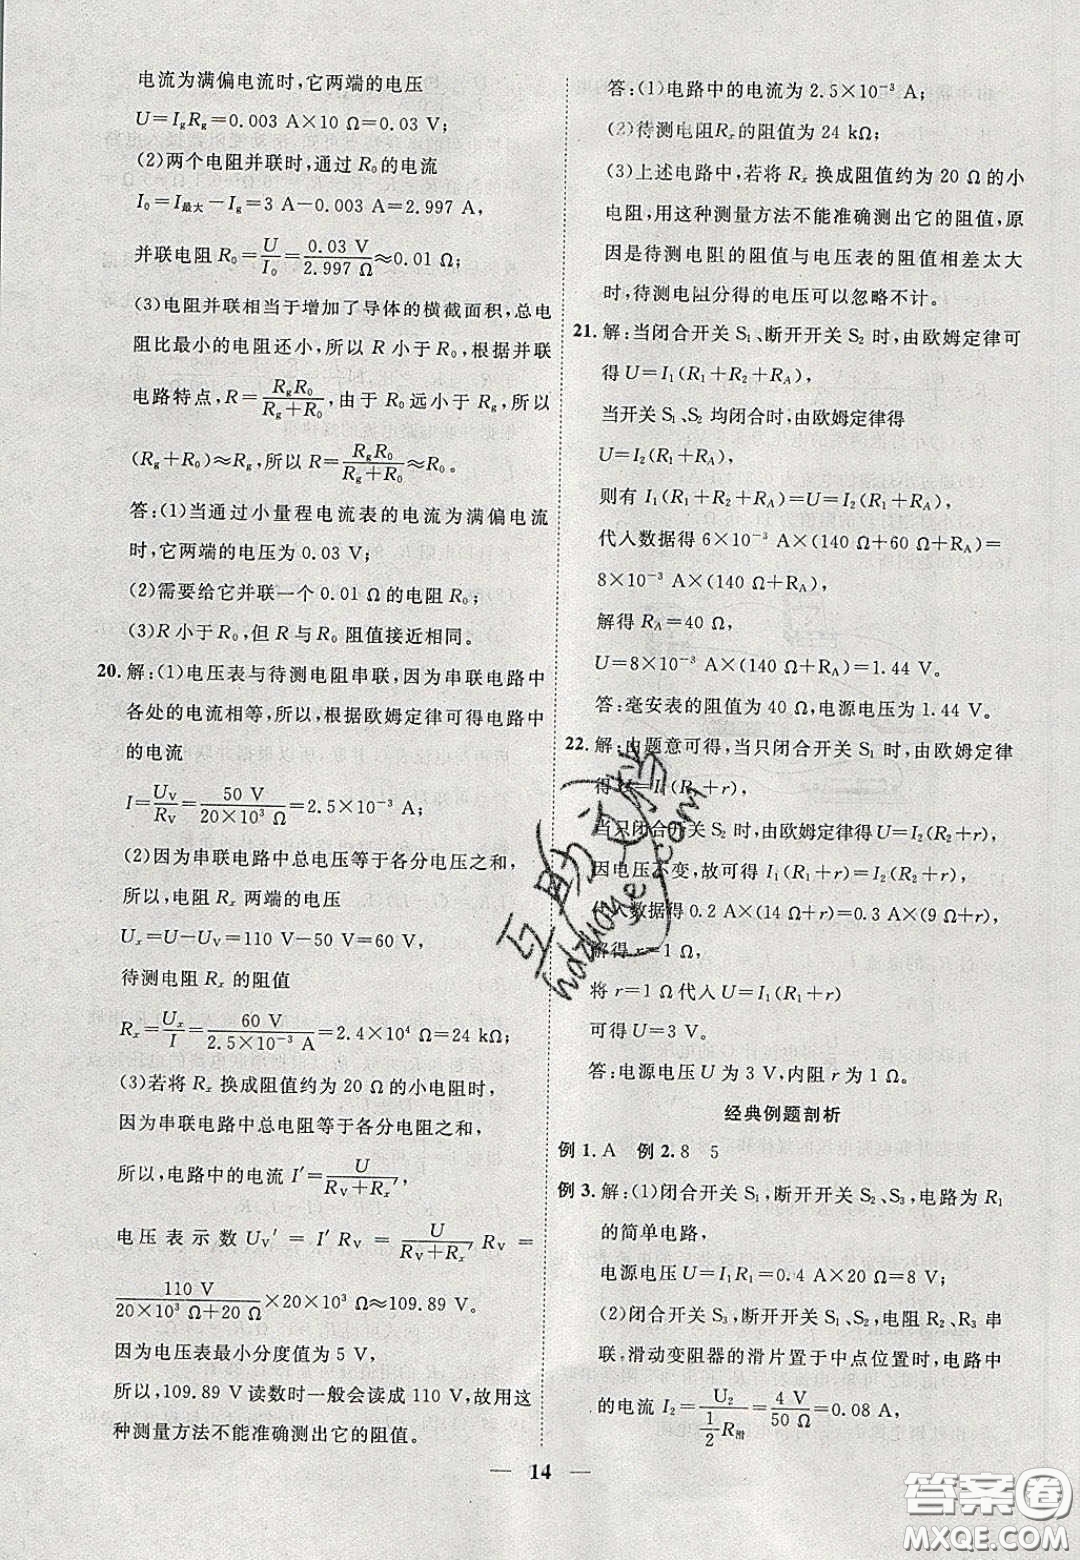 电流为满偏电流时,它两端的电压
U=IgRg=0.003 A×10 Ω=0.03 V;
(2)两个电阻并联时,通过 R₀ 的电流
I₀=I最大-Ig=3 A-0.003 A=2.997 A,
并联电阻 R₀=U/I₀=0.03 V/2.997 Ω≈0.01 Ω;
(3)电阻并联相当于增加了导体的横截面积,总电
阻比最小的电阻还小,所以 R 小于 R₀,根据并联
电路特点,R=RgR₀/(Rg+R₀),由于 R₀ 远小于 Rg,所以
(Rg+R₀)≈Rg,所以 R=RgR₀/(Rg+R₀)≈R₀。
答:(1)当通过小量程电流表的电流为满偏电流
时,它两端的电压为 0.03 V;
(2)需要给它并联一个 0.01 Ω的电阻 R₀;
(3)R 小于 R₀,但 R 与 R₀ 阻值接近相同。
20. 解:(1)电压表与待测电阻串联,因为串联电路中
各处的电流相等,所以,根据欧姆定律可得电路中
的电流
I=Uv/Rv=50 V/(20×10³ Ω)=2.5×10⁻³ A;
(2)因为串联电路中总电压等于各分电压之和,
所以,电阻 Rx 两端的电压
Ux=U-Uv=110 V-50 V=60 V,
待测电阻 Rx 的阻值
Rx=Ux/I=60 V/(2.5×10⁻³ A)=2.4×10⁴ Ω=24 kΩ;
(3)若将 Rx 换成阻值约为 20 Ω的小电阻时,
因为串联电路中总电阻等于各分电阻之和,
所以,电路中的电流 I′=U/(Rv+Rx′),
电压表示数 Uv′=I′Rv=U/(Rv+Rx′)Rv=
110 V/(20×10³ Ω+20 Ω)×20×10³ Ω≈109.89 V。
因为电压表最小分度值为 5 V,
所以,109.89 V 读数时一般会读成 110 V,故用这
种测量方法不能准确测出它的阻值。
答:(1)电路中的电流为 2.5×10⁻³ A;
(2)待测电阻Rx的阻值为 24 kΩ;
(3)上述电路中,若将 Rx 换成阻值约为 20 Ω的小
电阻,用这种测量方法不能准确测出它的阻值,原
因是待测电阻的阻值与电压表的阻值相差太大
时,待测电阻分得的电压可以忽略不计。
21. 解:当闭合开关 S₁、断开开关 S₂ 时,由欧姆定律可
得 U=I₁(R₁+R₂+RA),
当开关 S₁、S₂ 均闭合时,由欧姆定律得
U=I₂(R₁+RA),
则有 I₁(R₁+R₂+RA)=U=I₂(R₁+RA),
代入数据得 6×10⁻³ A×(140 Ω+60 Ω+RA)=
8×10⁻³ A×(140 Ω+RA),
解得 RA=40 Ω,
U=8×10⁻³ A×(140 Ω+RA)=1.44 V。
答:毫安表的阻值为 40 Ω,电源电压为 1.44 V。
22. 解:由题意可得,当只闭合开关 S₁ 时,由欧姆定律
得 U=I₁(R₁+r);
当只闭合开关 S₂ 时,由欧姆定律得 U=I₂(R₂+r);
因电压不变,故可得 I₁(R₁+r)=I₂(R₂+r),
代入数据得 0.2 A×(14 Ω+r)=0.3 A×(9 Ω+r),
解得 r=1 Ω,
将 r=1 Ω代入 U=I₁(R₁+r)
可得 U=3 V。
答:电源电压 U 为 3 V,内阻 r 为 1 Ω。
经典例题剖析
例 1. A 例 2. 8 5
例 3. 解:(1)闭合开关 S₁,断开开关 S₂、S₃,电路为 R₁
的简单电路,
电源电压 U=I₁R₁=0.4 A×20 Ω=8 V;
(2)闭合开关 S₃,断开开关 S₁、S₂,电阻 R₂、R₃ 串
联,滑动变阻器的滑片置于中点位置时,电路中
的电流 I₂=U₂/(½R滑)=4 V/50 Ω=0.08 A,
— 14 —
互助文档
hdzuoye.com
答案圈
MXQE.COM